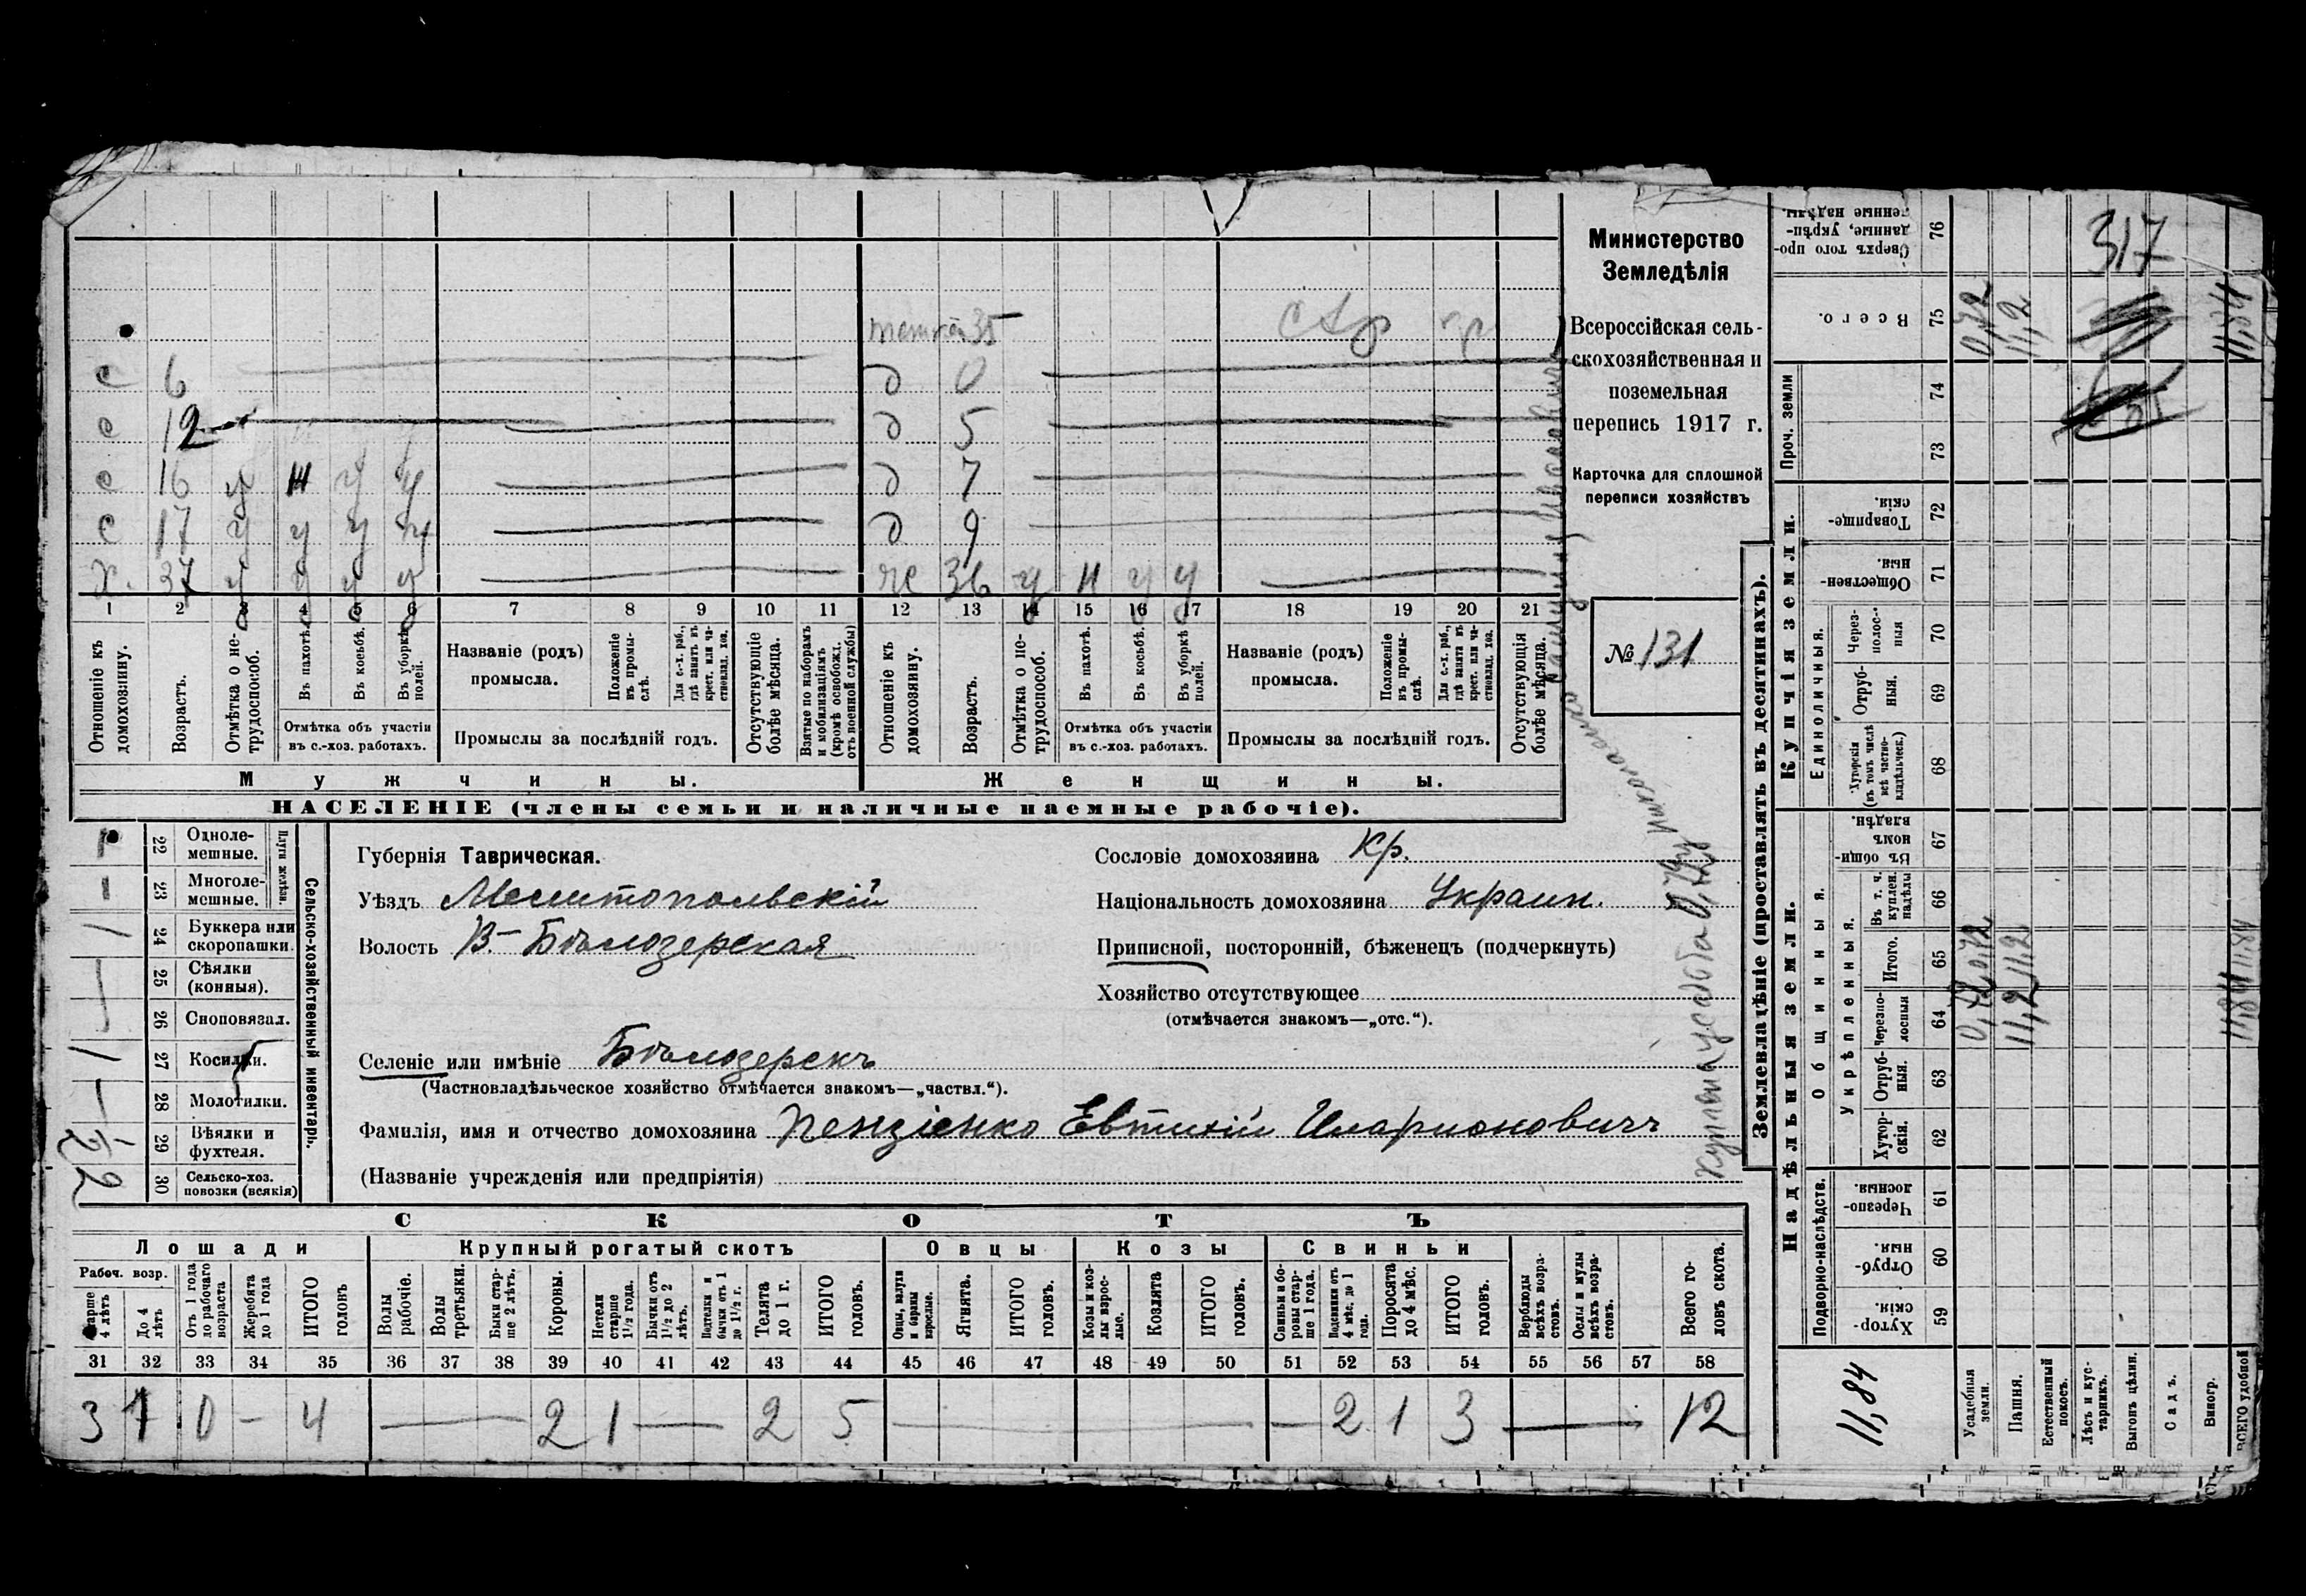 тетка 35
с 6
д 0
с 12
д 5
с 16 у н у у
д 7
с 17 у у у у
д 9
х. 37 у у у у
ж 36 у н у у
1 2 3 4 5 6 7 8 9 10 11 12 13 14 15 16 17 18 19 20 21
Отношеніе къ домохозяину.
Возрастъ.
Отмѣтка о не-трудоспособ.
Въ пахотѣ.
Въ косьбѣ.
Въ уборкѣ полей.
Отмѣтка объ участіи въ с.-хоз. работахъ.
Названіе (родъ) промысла.
Положеніе въ промы-слѣ.
Для с.-х. раб., гдѣ занятъ въ крест. или ча-стновлад. хоз.
Промыслы за послѣдній годъ.
Отсутствующіе болѣе мѣсяца.
Взятые по наборамъ и мобилизаціямъ (кромѣ освобожд. отъ военной службы)
Отношеніе къ домохозяину.
Возрастъ.
Отмѣтка о не-трудоспособ.
Въ пахотѣ.
Въ косьбѣ.
Въ уборкѣ полей.
Отмѣтка объ участіи въ с.-хоз. работахъ.
Названіе (родъ) промысла.
Положеніе въ промы-слѣ.
Для с.-х. раб., гдѣ занята въ крест. или ча-стновлад. хоз.
Промыслы за послѣдній годъ.
Отсутствующія болѣе мѣсяца.
Мужчины.
Женщины.
НАСЕЛЕНІЕ (члены семьи и наличные наемные рабочіе).
Министерство
Земледѣлія
Всероссійская сель-
скохозяйственная и
поземельная
перепись 1917 г.
Карточка для сплошной
переписи хозяйствъ
№ 131
22 Одноле-мешные.
23 Многоле-мешные.
Плуги желѣзн.
24 Буккера или скоропашки.
25 Сѣялки (конныя).
26 Сноповязал.
27 Косилки.
28 Молотилки.
29 Вѣялки и фухтеля.
30 Сельско-хоз. повозки (всякія)
2
Сельско-хозяйственный инвентарь.
Губернія Таврическая.
Уѣздъ Мелитопольскій
Волость В.-Бѣлозерская
Селеніе или имѣніе Бѣлозерскъ
(Частновладѣльческое хозяйство отмѣчается знакомъ—„частвл.“).
Фамилія, имя и отчество домохозяина Пензіенко Евтихій Иларионовичъ
(Названіе учрежденія или предпріятія)
Сословіе домохозяина Кр.
Національность домохозяина Украин.
Приписной, посторонній, бѣженецъ (подчеркнуть)
Хозяйство отсутствующее
(отмѣчается знакомъ—„отс.“).
СКОТЪ
Лошади
Крупный рогатый скотъ
Овцы
Козы
Свиньи
Рабоч. возр.
Старше 4 лѣтъ
До 4 лѣтъ
Отъ 1 года до рабочаго возраста
Жеребята до 1 года
ИТОГО головъ
Волы рабочіе.
Волы третьяки.
Быки стар-ше 2 лѣтъ.
Коровы.
Нетели старше 1½ года.
Бычки отъ 1½ до 2 лѣтъ.
Подтелки и бычки отъ 1 до 1½ г.
Телята до 1 г.
ИТОГО головъ.
Овцы, валухи и бараны взрослые.
Ягнята.
ИТОГО головъ.
Козы и коз-лы взрос-лые.
Козлята
ИТОГО головъ.
Свиньи и бо-ровы стар-ше 1 года.
Подсвинки отъ 4 мѣс. до 1 года.
Поросята до 4 мѣс.
ИТОГО головъ.
Верблюды всѣхъ возра-стовъ.
Ослы и мулы всѣхъ возра-стовъ.
Всего го-ловъ скота.
31 32 33 34 35 36 37 38 39 40 41 42 43 44 45 46 47 48 49 50 51 52 53 54 55 56 57 58
3 1 0 — 4 — 2 1 — 2 5 — — 2 1 3 — 12
Землевладѣніе (проставлять въ десятинахъ).
Надѣльныя земли.
Купчія земли.
Проч. земли
Подворно-наслѣдств.
Общинныя.
Укрѣпленныя.
Единоличныя.
59 Хутор-скія.
60 Отруб-ныя.
61 Черезпо-лосныя.
62 Хутор-скія.
63 Отруб-ныя.
64 Черезпо-лосныя
65 Итого.
66 Въ т. ч. куплен. надѣлы
67 Въ общин-номъ владѣн.
68 Хуторскія (въ томъ числѣ всѣ частно-владѣльческ.)
69 Отруб-ныя.
70 Через-полос-ныя
71 Обществен-ныя.
72 Товарище-скія.
73
74
75 Всего.
76 Сверхъ того про-данные, укрѣп-ленные надѣлы.
Усадебныя земли.
Пашня.
Естественный покосъ.
Лѣсъ и кус-тарникъ.
Выгонъ цѣлин.
Садъ.
Виногр.
ВСЕГО удобной
11,84
0,72 0,72
11,2 11,2
11,84 11,84
11,2
11,84
317